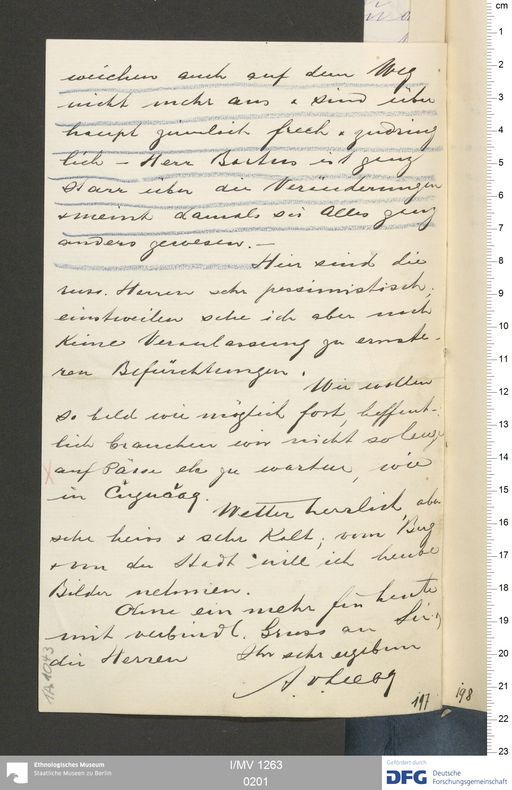 weichen auch auf dem Weg
nicht mehr aus & sind über
haupt ziemlich frech & zudring
lich – Herr Bartus ist ganz
starr über die Veränderungen
& meint damals sei Alles ganz
anders gewesen. –
Hier sind die
russ. Herren sehr pessimistisch,
einstweilen sehe ich aber noch
keine Veranlassung zu ernste-
ren Befürchtungen.
Wir wollen
so bald wie möglich fort, hoffent-
lich brauchen wir nicht so lange
auf Pässe etc zu warten, wie
in
Wetter herrlich, aber
sehr heiss & sehr kalt; vom Berg
& von der Stadt will ich heute
Bilder nehmen.
Ohne ein mehr für heute
mit verbindl. Gruss an Sie &
die Herren Ihr sehr ergebner
A. v. Le Coq
197
198
IA 1043
cm
1
2
3
4
5
6
7
8
9
10
11
12
13
14
15
16
17
18
19
20
21
22
23
Ethnologisches Museum
Staatliche Museen zu Berlin
I/MV 1263
0201
Gefördert durch
DFG Deutsche
Forschungsgemeinschaft